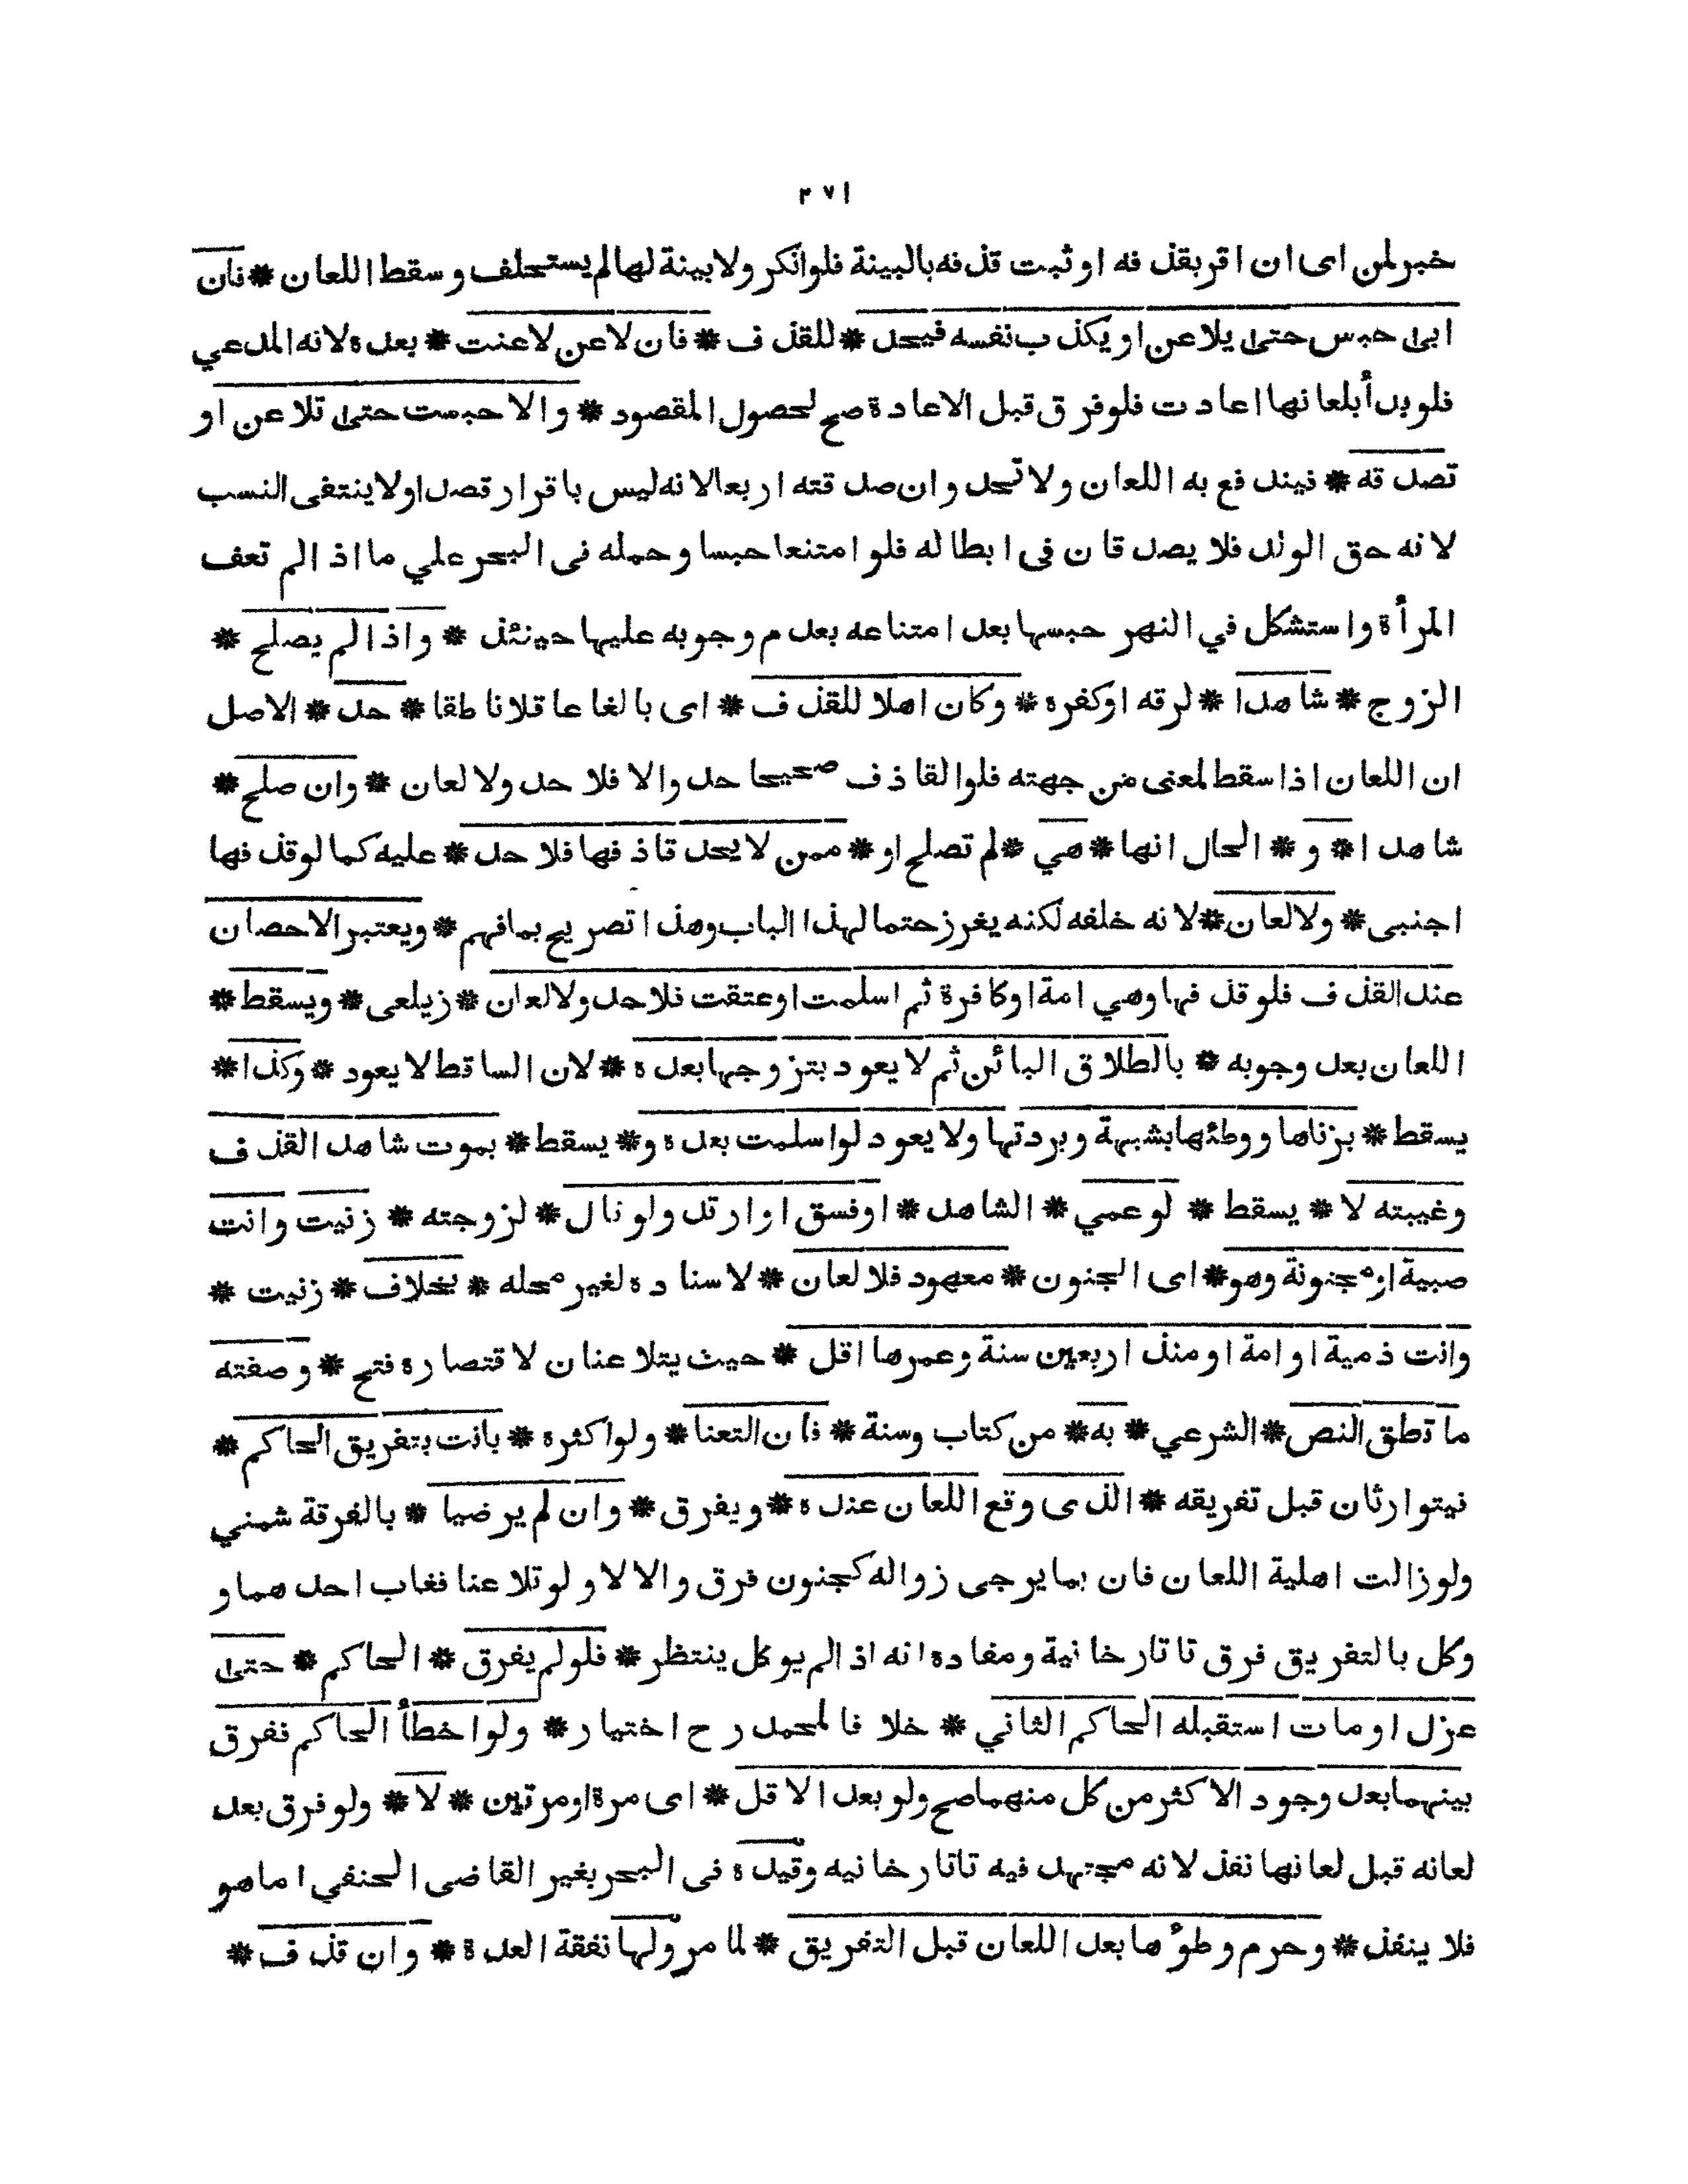 ٢٧١
خبر لمن اى ان اقر بقذفه او ثبت قذفه بالبينة فلو انكر ولا بينة لها لم يستحلف وسقط اللعان * فان
ابى حبس حتى يلاعن او يكذب نفسه فيحد * للقذف * فان لاعن لاعنت * بعده لانه المدعي
فلو بدأ بلعانها اعادت فلو فرق قبل الاعادة صح لحصول المقصود * والا حبست حتى تلاعن او
تصدقه * فيندفع به اللعان ولا تحد وان صدقته اربعا لانه ليس باقرار قصدا ولا ينتفى النسب
لانه حق الولد فلا يصدقان فى ابطاله فلو امتنعا حبسا وحمله فى البحر علي ما اذا لم تعف
المرأة واستشكل في النهر حبسها بعد امتناعه بعدم وجوبه عليها حينئذ * واذا لم يصلح *
الزوج * شاهدا * لرقه او كفره * وكان اهلا للقذف * اى بالغا عاقلا ناطقا * حد * الاصل
ان اللعان اذا سقط لمعنى من جهته فلو القاذف صحيحا حد والا فلا حد ولا لعان * وان صلح *
شاهدا * و * الحال انها * هي * لم تصلح او * ممن لا يحد قاذفها فلا حد * عليه كما لو قذفها
اجنبى * ولا لعان * لانه خلفه لكنه يغرز حتما لهذا الباب وهذا تصريح بما فهم * ويعتبر الاحصان
عند القذف فلو قذفها وهي امة او كافرة ثم اسلمت او عتقت فلا حد ولا لعان * زيلعى * ويسقط *
اللعان بعد وجوبه * بالطلاق البائن ثم لا يعود بتزوجها بعده * لان الساقط لا يعود * وكذا *
يسقط * بزناها ووطئها بشبهة وبردتها ولا يعود لو اسلمت بعده و * يسقط * بموت شاهد القذف
وغيبته لا * يسقط * لو عمي * الشاهد * او فسق او ارتد ولو قال * لزوجته * زنيت وانت
صبية او مجنونة وهو * اى الجنون * معهود فلا لعان * لاسناده لغير محله * بخلاف * زنيت *
وانت ذمية او امة او منذ اربعين سنة وعمرها اقل * حيث يتلاعنان لاقتصاره فتح * وصفته
ما نطق النص * الشرعي * به * من كتاب وسنة * فان التعنا * ولو اكثره * بانت بتفريق الحاكم *
فيتوارثان قبل تفريقه * الذى وقع اللعان عنده * ويفرق * وان لم يرضيا * بالفرقة شمني
ولو زالت اهلية اللعان فان بما يرجى زواله كجنون فرق والا لا ولو تلاعنا فغاب احدهما و
وكل بالتفريق فرق تاتارخانية ومفاده انه اذا لم يوكل ينتظر * فلو لم يفرق * الحاكم * حتى
عزل او مات استقبله الحاكم الثاني * خلافا لمحمد رح اختيار * ولو اخطأ الحاكم ففرق
بينهما بعد وجود الاكثر من كل منهما صح ولو بعد الاقل * اى مرة او مرتين * لا * ولو فرق بعد
لعانه قبل لعانها نفذ لانه مجتهد فيه تاتارخانيه وقيده فى البحر بغير القاضى الحنفي اما هو
فلا ينفذ * وحرم وطؤها بعد اللعان قبل التفريق * لما مر ولها نفقة العدة * وان قذف *